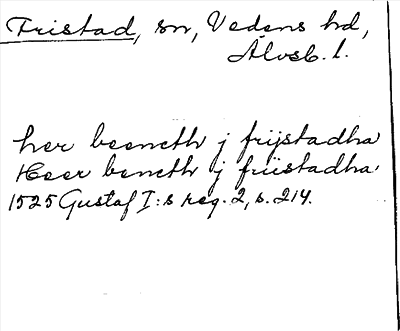 Fristad, sn, Vedens hd,
Älvsb. l.
her beeneth j frijstadha
Heer beneth j friistadha
1525 Gustaf I:s reg. 2, s. 214.